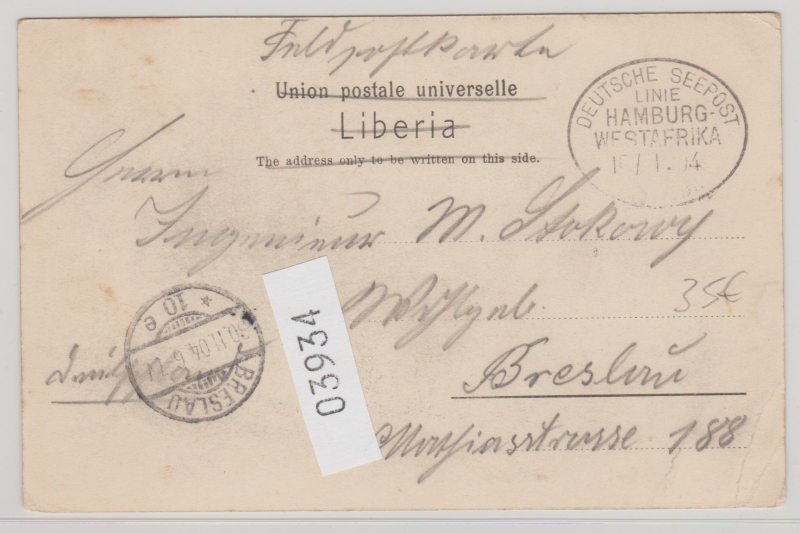 Feldpostkarte
Union postale universelle
Liberia
The address only to be written on this side.
DEUTSCHE SEEPOST
LINIE
HAMBURG-
WESTAFRIKA
Herrn
Ingenieur M. Stokowy
35€
Breslau
Mathiasstrasse 188
10 e
30.11.04.6
BRESLAU
03934